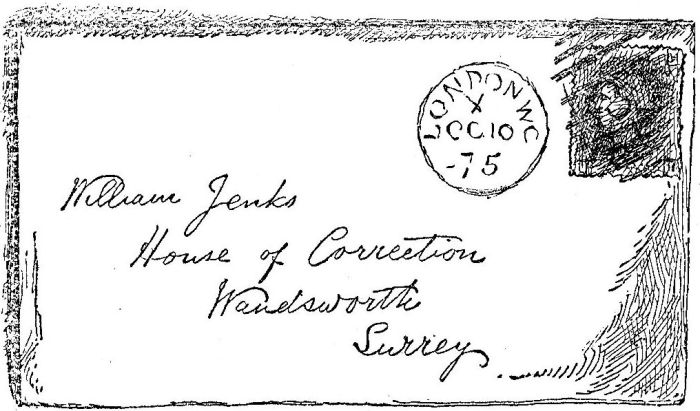 LONDON WC
X
OC 10
-75
William Jenks
House of Correction
Wandsworth
Surrey